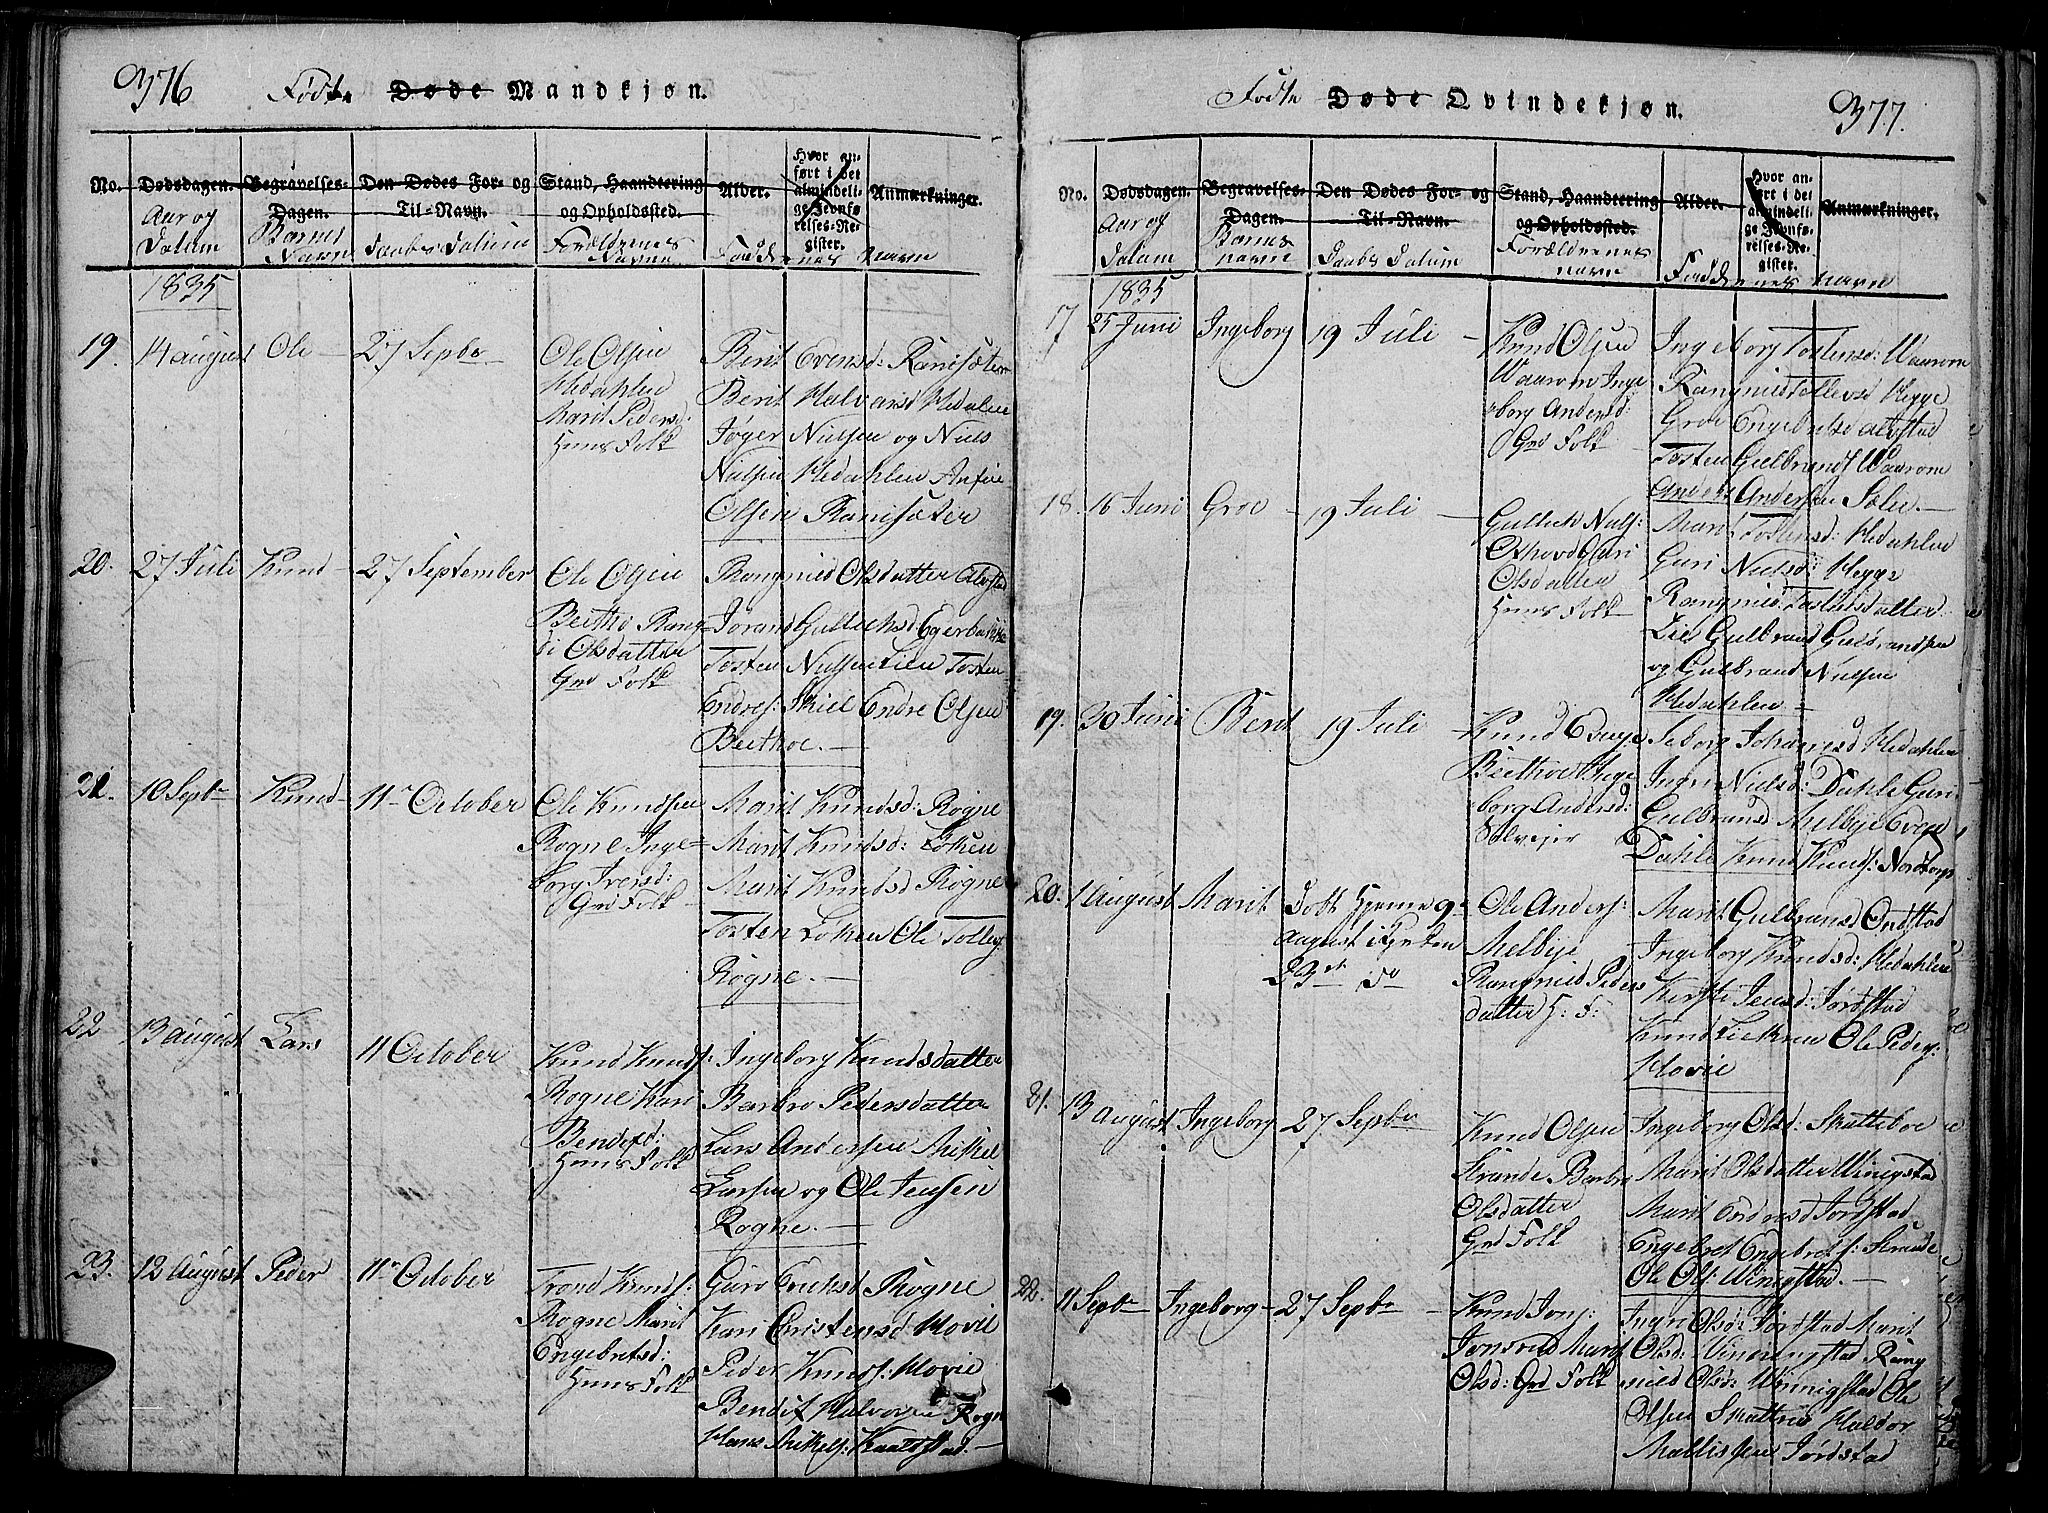 376
Fødte Døde Mandkjøn.
No.
Dødsdagen.
Aar og
Datum
Begravelses-
Dagen.
Barnets
Navn
Den Dødes For- og
Til-Navn.
Daabs Datum
Stand, Haandtering
og Opholdssted.
Forældrenes
Navne
Alder.
Hvor an-
ført i det
almindeli-
ge Jevnfø
relses-Re-
gister.
Anmærkninger.
Faddernes navne
1835
19.
14 august
Ole
27 Septbr
Ole Olsen
Hedahlen
Marit Pedersd:
Huus Folk
Berit Evensd: Ranisæter
Berit Halvorsd Hedalen
Jøger Nielsen og Niels
Nielsen Hedahlen
Olsen Ranisæter
20.
27 Juli
Knud
27 September
Ole Olsen
Beitho Rang=
di Olsdatter
Grd Folk
Rangnied Olsdatter Alfstad
Jørand Gulliksd Egerbakke
Tosten Nielsen Lien Tosten
Endres: Skiel Endre Olsen
Beithoe.
21.
10 Septbr
Knud
11 October
Ole Knudsen
Rogne Inge=
borg Iversd:
Grd Folk
Marit Knudsd: Rogne
Marit Knudsd: Løken
Marit Knudsd Rogne
Tosten Løken Ole Tollefs
Rogne.
22
13 august
Lars
11 October
Knud Knuds:
Rogne Kari
Bendixd:
Huus Folk
Ingeborg Knudsdatter
Barbro Pedersdatter
Lars Andersen Mikkel
Larsen og Ole Jensen
Rogne.
23.
12 August
Peder
11 October
Trond Knuds:
Rogne Marit
Engebretsd:
Huus Folk
Guro Erichsd Rogne
Kari Cristensd Hovie
Peder Knuds: Hovie
Bendix Halvorsen Rogn
Hans Mikels: Kvalstad.
Fødte Døde Qvindekjøn.
377.
No.
Dødsdagen.
Aar og
Datum
Begravelses-
Dagen.
Barnets
navn
Den Dødes For- og
Til-Navn.
Daabs Datum
Stand, Haandtering
og Opholdssted.
Forældrenes
navne
Alder.
Hvor an-
ført i det
almindeli-
ge Jevnfø-
relses-Re-
gister.
Anmærkninger.
Faddernes navne
1835
17
25 Juni
Ingeborg
19 Juli
Knud Olsen
Waarom Inge
borg Andersd:
Grd Folk
Ingeborg Tostensd: Waarom
Rangnied Tollevsd Hegge
Groe Engebretsd Alfstad
Tosten Gulbrands Waarom
Anders Andersen Sælie
18.
16 Juni
Groe
19 Juli
Gullich Niels:
Guri
Olsdatter
Huus Folk
Marit Tostensd: Hedahlen
Guri Nielsd: Hegge
Rangnied Tostensdatter
Lie Gulbrand Gulbrandsen
og Gulbrand Nielsen
Hedahlen
19.
20 Juni
Berit
19 Juli
Knud
Beithoe Inge
borg Andersd:
Sælvejer
Seborg Johannesd Hedahlen
Ingri Nielsd: Dahle Guri
Gulbransd Melbye Even
Dahle Knud Knuds: Nordtorp
20.
1 August
Marit
Døbt Hjemme 9
August i Kyrken
23 do
Ole Anders:
Melbye
Rangnied Peders
datter H: F:
Marit Gulbransd Ondstad
Ingeborg Knudsd: Hedahlen
Kirsti Jensd: Jordstad
Knud Liekren Ole Peders:
Hovie
21.
13 August
Ingeborg
27 Septbr
Knud Olsen
Strande Barbro
Olsdatter
Grd Folk
Ingeborg Olsd: Skatteboe
Marit Olsdatter Winigstad
Marit Endresd Jordstad
Engebret Engebrets: Strande
Ole Ols: Winigstad.
22.
11 Septbr
Ingeborg
27 Septbr
Knud Jons:
Jonsrud Marit
Olsd: Grd Folk
Ingri Olsd: Jordstad Marit
Olsd: Winningstad Rang
nied Olsd: Winnigstad Ole
Olsen Skattrie Haldor
Mallissen Jørdstad